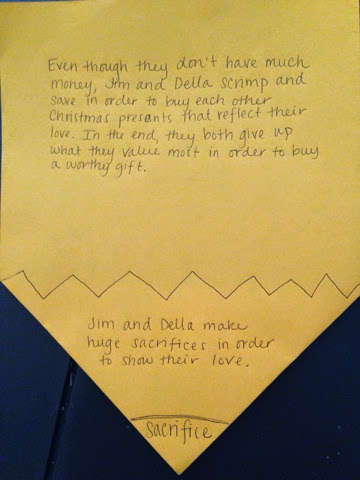 Even though they don't have much
money, Jim and Della scrimp and
save in order to buy each other
Christmas presents that reflect their
love. In the end, they both give up
what they value most in order to buy
a worthy gift.
Jim and Della make
huge sacrifices in order
to show their love.
Sacrifice